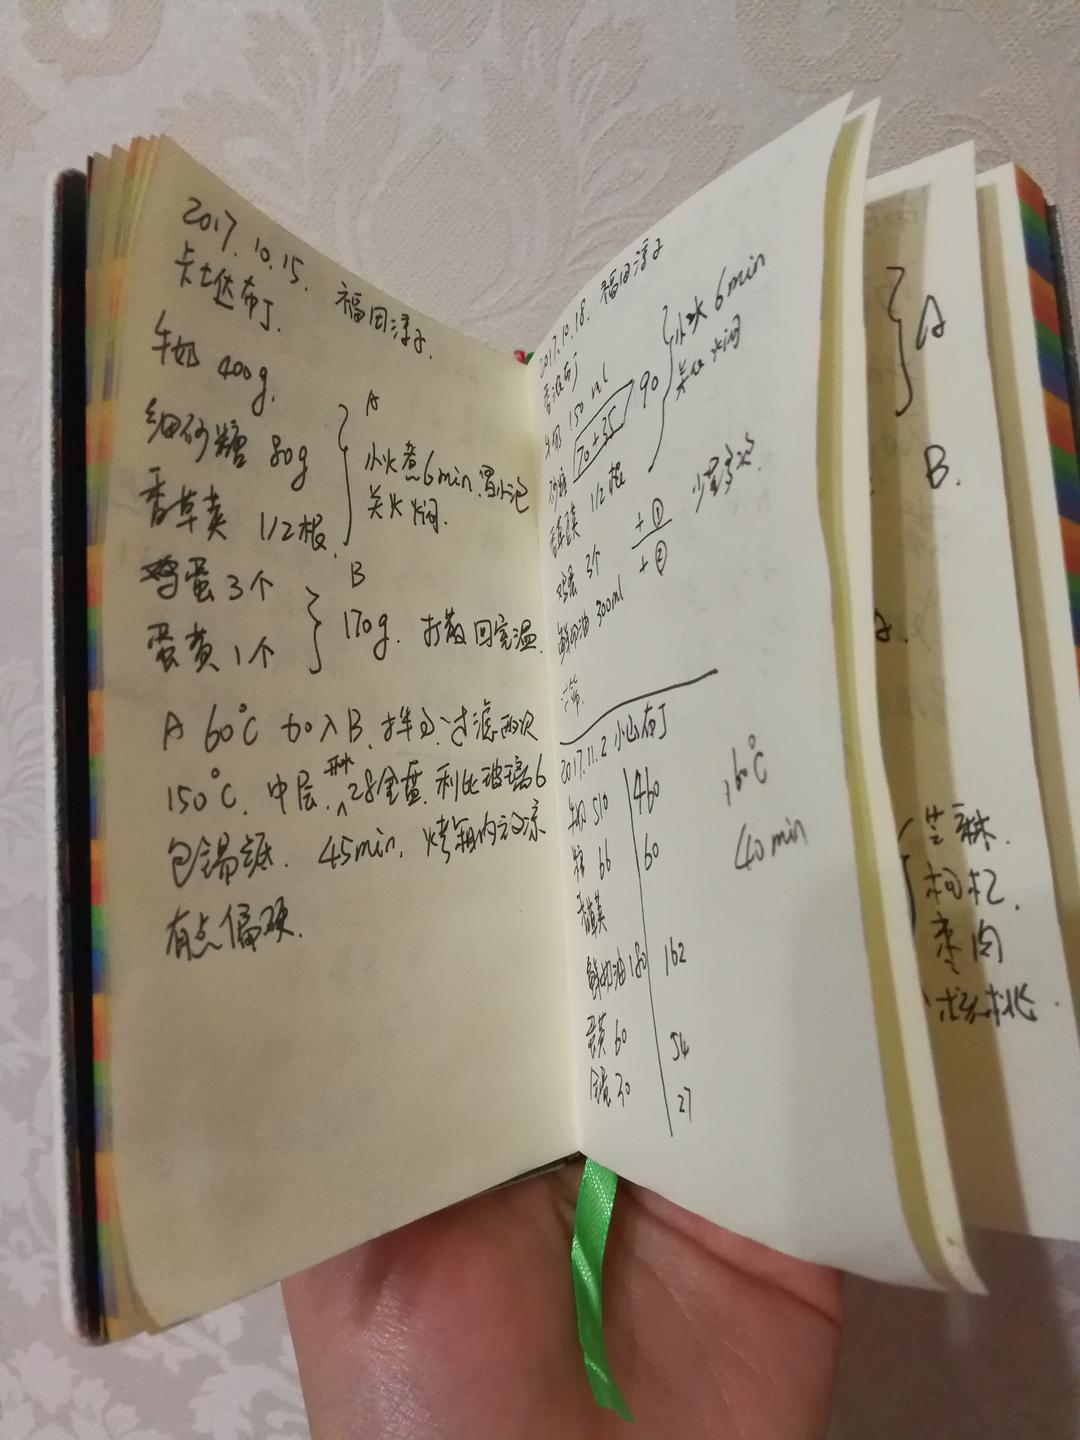 2017.10.15. 福田淳子.
卡士达布丁.
牛奶 400g.
细砂糖 80g
香草荚 1/2根.
A
小火煮~6min.冒小泡
关火焖.
鸡蛋 3个
蛋黄 1个
B
170g. 打散 回室温.
A 60°C 加入B.拌匀、过滤两次
150°C. 中层. 28全蛋.利比玻璃6
包锡纸. 45min. 烤箱内 凉
有点偏硬.
2017.10.18. 福田淳子
布丁
牛奶 150 ml
砂糖 70+35 90
香草荚 1/2根
鸡蛋 3个
鲜奶油 300ml
小火 6min
关火 焖
+①
+②
2017.11.2 小山布丁
牛奶 510 460
糖 66 60
香草荚
鲜奶油 180 162
蛋黄 60 54
全蛋 30 27
160°C
40min
A
B.
芝麻.
枸杞.
枣肉
核桃.